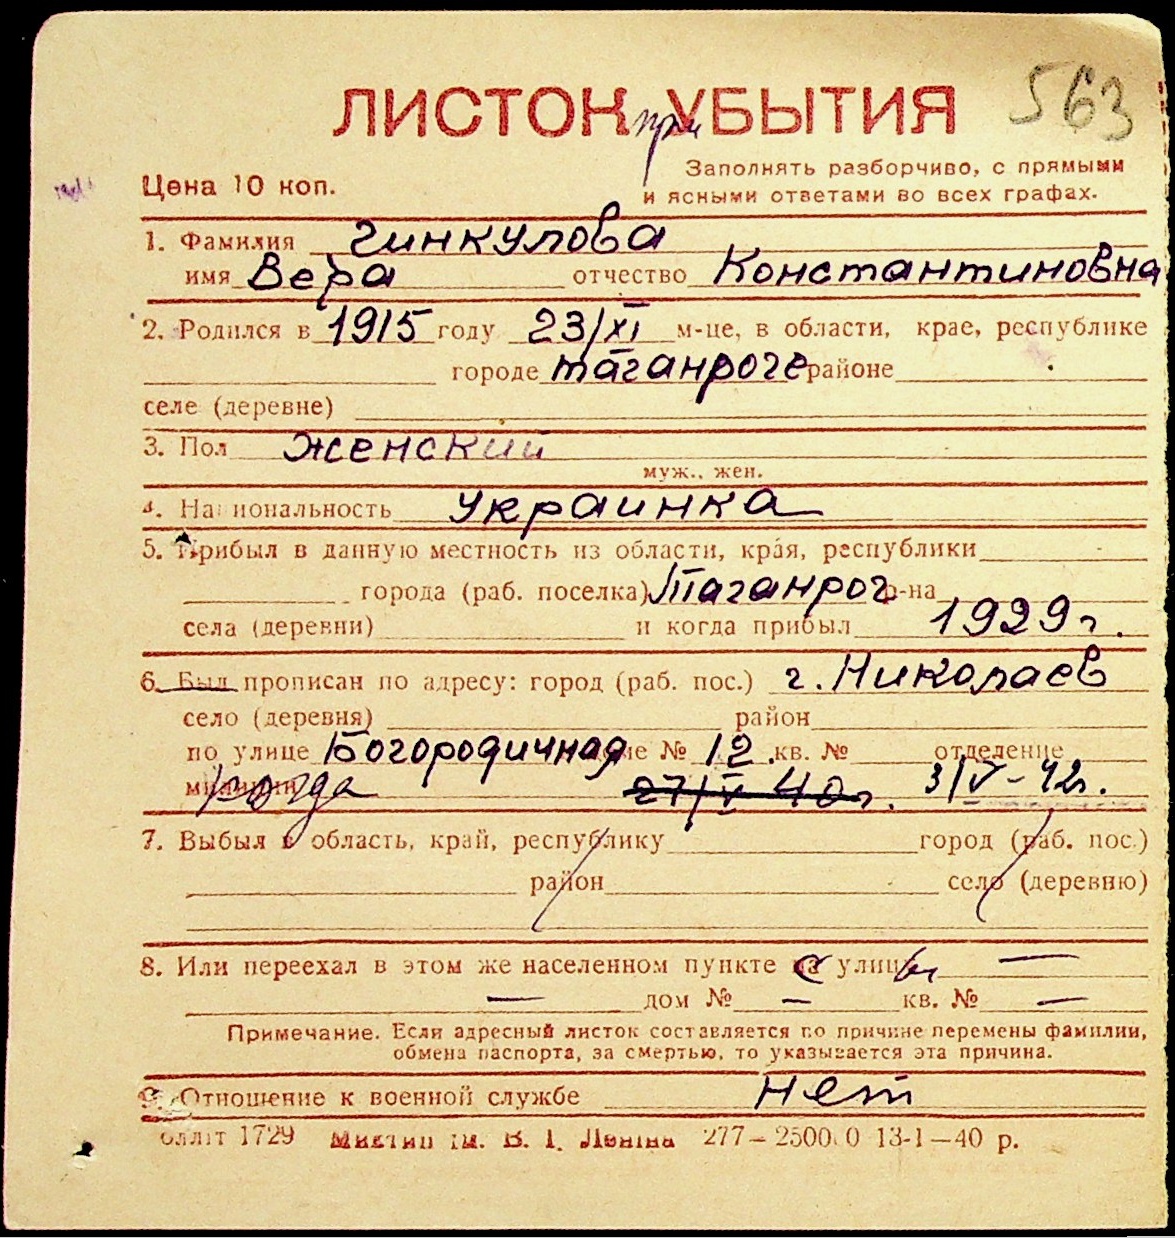 563
ЛИСТОК при УБЫТИЯ
Заполнять разборчиво, с прямыми
Цена 10 коп. и ясными ответами во всех графах.
1. Фамилия Гинкулова
имя Вера отчество Константиновна
2. Родился в 1915 году 23/XI м-це, в области, крае, республике
городе Таганроге районе
селе (деревне)
3. Пол женский
муж., жен.
4. Национальность украинка
5. Прибыл в данную местность из области, края, республики
города (раб. поселка) Таганрог р-на
села (деревни) и когда прибыл 1929 г.
6. Был прописан по адресу: город (раб. пос.) г. Николаев
село (деревня) район
по улице Богородичная доме № 12 кв. № отделение
милиции когда 27/V 40 г. 3/V-42 г.
7. Выбыл в область, край, республику город (раб. пос.)
район село (деревню)
8. Или переехал в этом же населенном пункте на улицу —
— дом № — кв. № —
Примечание. Если адресный листок составляется по причине перемены фамилии,
обмена паспорта, за смертью, то указывается эта причина.
9. Отношение к военной службе нет
олліт 1729 ім. В. І. Леніна 277—25000 13-1—40 р.